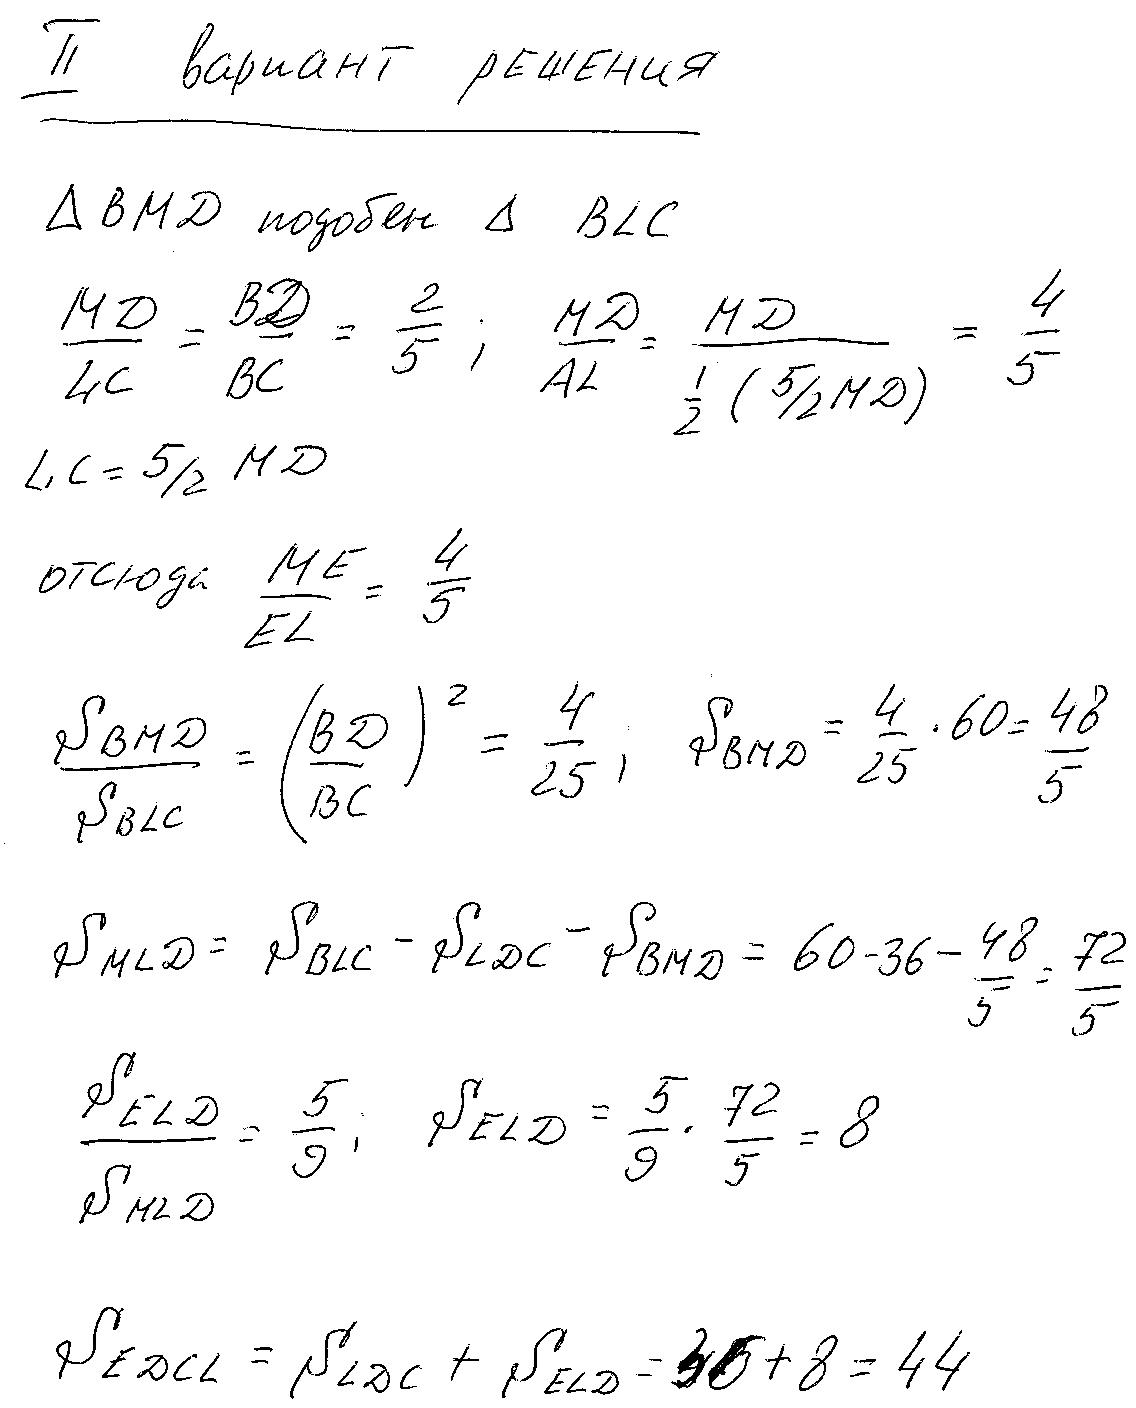 II вариант решения
Δ BMD подобен Δ BLC
MD/LC = BD/BC = 2/5 ; MD/AL = MD/(1/2 (5/2 MD)) = 4/5
LC = 5/2 MD
отсюда ME/EL = 4/5
S_BMD/S_BLC = (BD/BC)^2 = 4/25 ; S_BMD = 4/25 · 60 = 48/5
S_MLD = S_BLC - S_LDC - S_BMD = 60 - 36 - 48/5 = 72/5
S_ELD/S_MLD = 5/9 ; S_ELD = 5/9 · 72/5 = 8
S_EDCL = S_LDC + S_ELD = 36 + 8 = 44